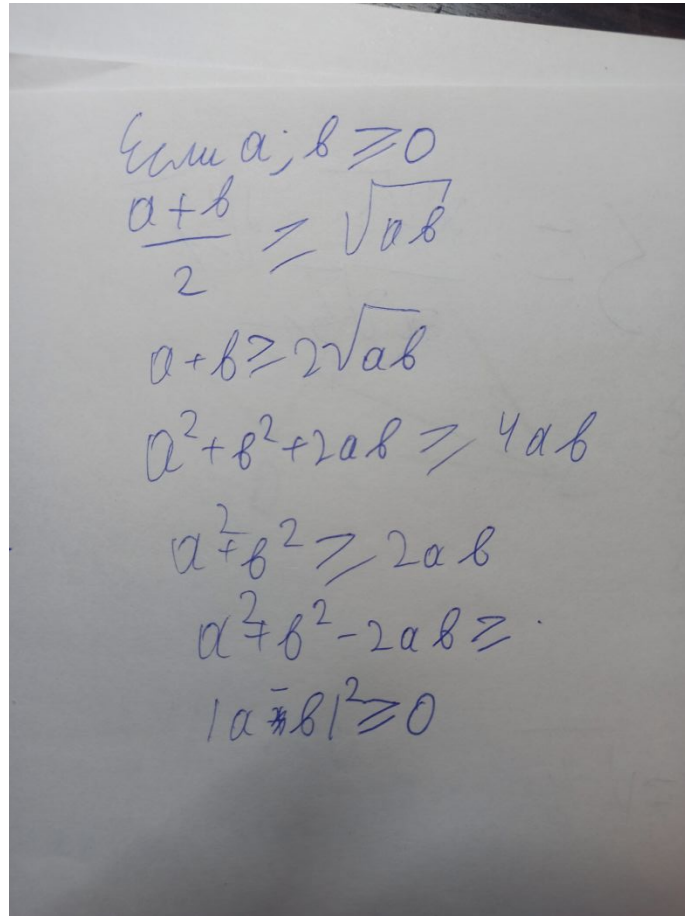 Если a; b ≥ 0
(a+b)/2 ≥ √ab
a+b ≥ 2√ab
a²+b²+2ab ≥ 4ab
a²+b² ≥ 2ab
a²+b²-2ab ≥
|a-b|² ≥ 0